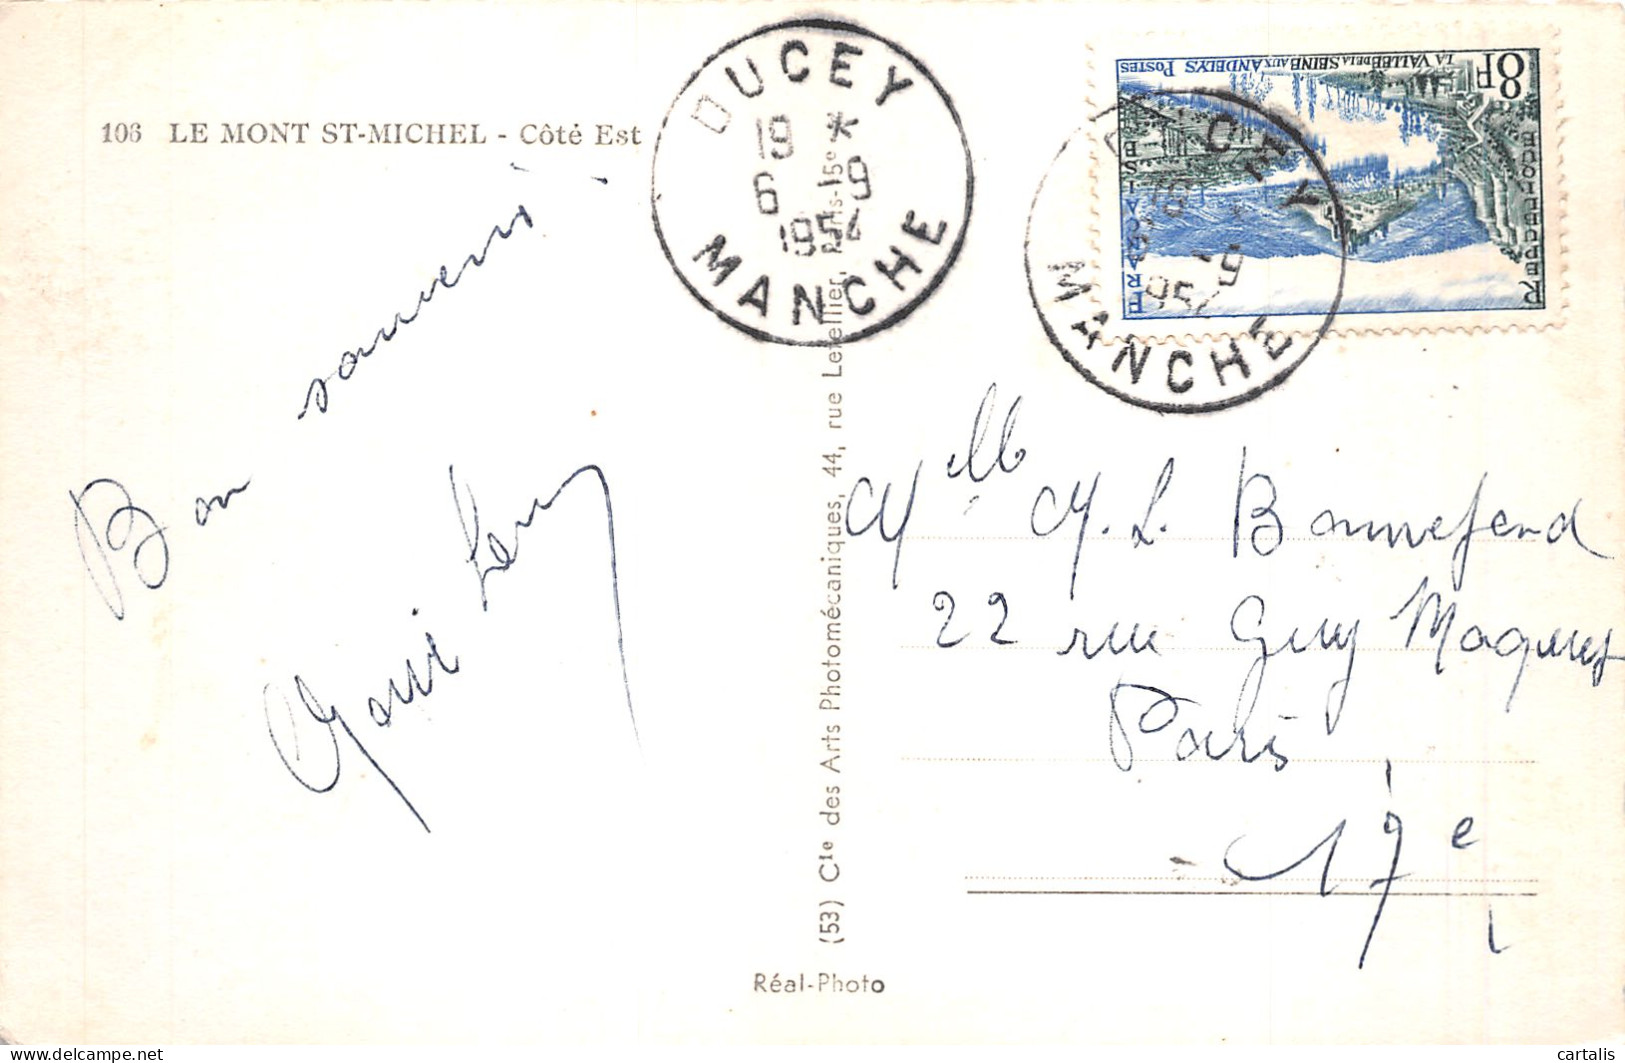 106 LE MONT ST-MICHEL - Côté Est
DUCEY
19 *
6 -9
1954
MANCHE
8F
LA VALLÉE DE LA SEINE AUX ANDELYS POSTES
RÉPUBLIQUE
FRANÇAISE
CEY
-9
195
MANCHE
Bon souvenir
Mlle M. L. Bonnefond
22 rue Guy Moquet
Paris
17e
(53) Cie des Arts Photomécaniques, 44, rue Letellier, Paris-15e
Réal-Photo
cartalis
delcampe.net